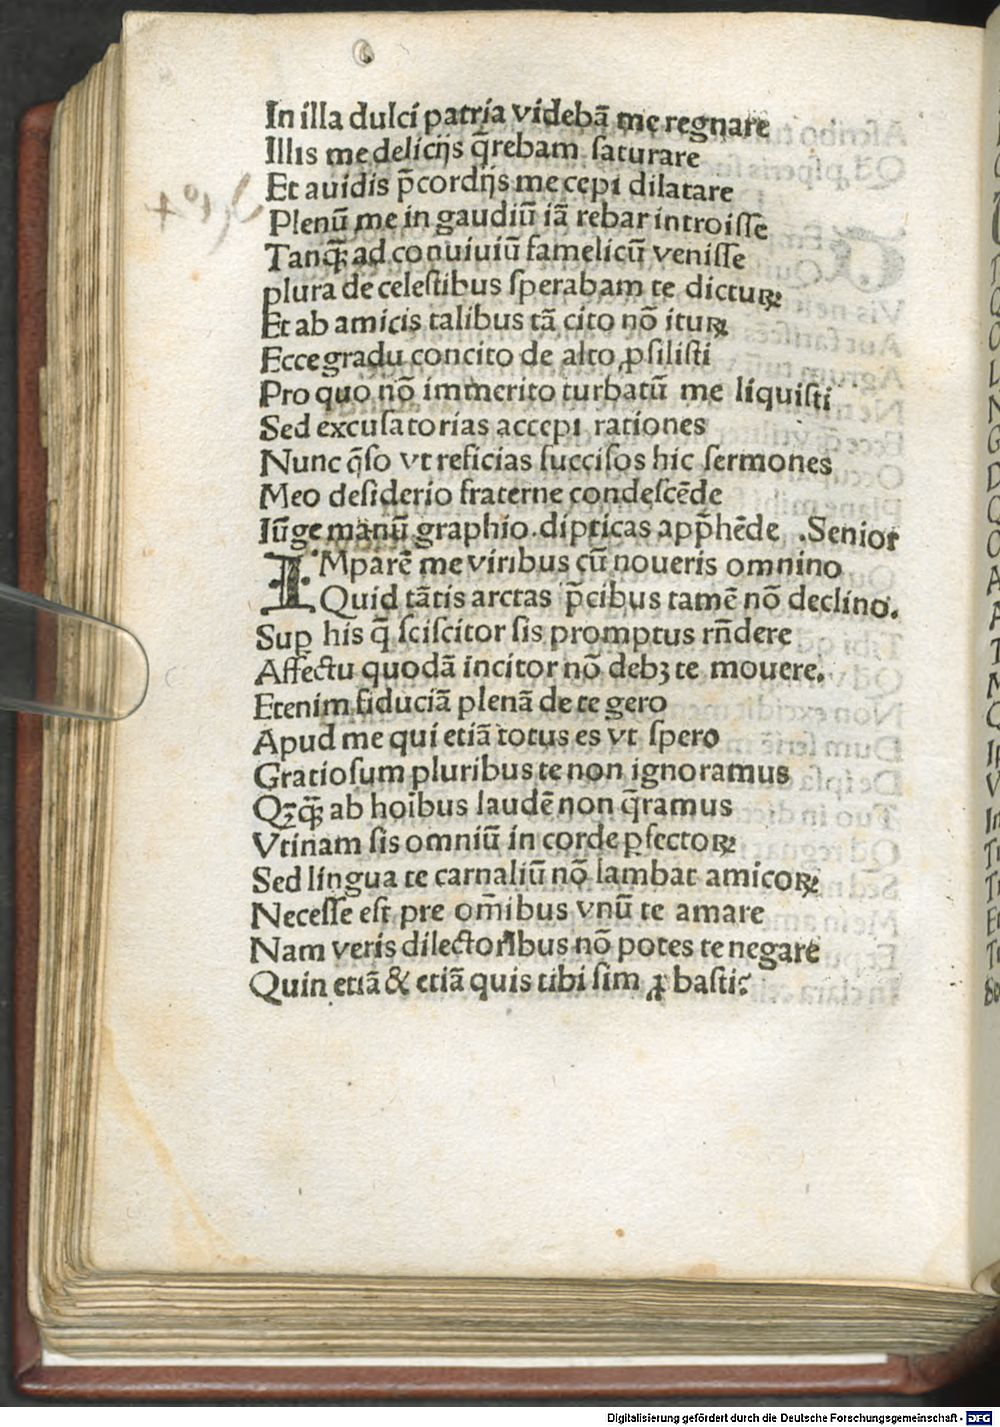 In illa dulci patria videbā me regnare
Illis me delicijs q̄rebam saturare
Et auidis p̄cordijs me cepi dilatare
Plenū me in gaudiū iā rebar introisse
Tanq̄ꝫ ad conuiuiū famelicū venisse
plura de celestibus sperabam te dictuꝝ
Et ab amicis talibus tā cito nō ituꝝ
Ecce gradu concito de alto ꝓsilisti
Pro quo nō immerito turbatū me liquisti
Sed excusatorias accepi rationes
Nunc q̄so vt reficias succisos hic sermones
Meo desiderio fraterne condescēde
Iūge manū graphio.dipticas app̄hēde .Senior
IMparē me viribus cū noueris omnino
Quid tātis arctas p̄cibus tamē nō declino.
Suꝑ his q̄ sciscitor sis promptus rn̄dere
Affectu quodā incitor nō debꝫ te mouere.
Etenim fiduciā plenā de te gero
Apud me qui etiā totus es vt spero
Gratiosum pluribus te non ignoramus
Qꝫq̄ꝫ ab hoībus laudē non q̄ramus
Vtinam sis omniū in corde ꝑfectoꝝ
Sed lingua te carnaliū nō lambat amicoꝝ
Necesse est pre om̄ibus vnū te amare
Nam veris dilectoribus nō potes te negare
Quin etiā & etiā quis tibi sim ꝓbasti?
Digitalisierung gefördert durch die Deutsche Forschungsgemeinschaft - DFG